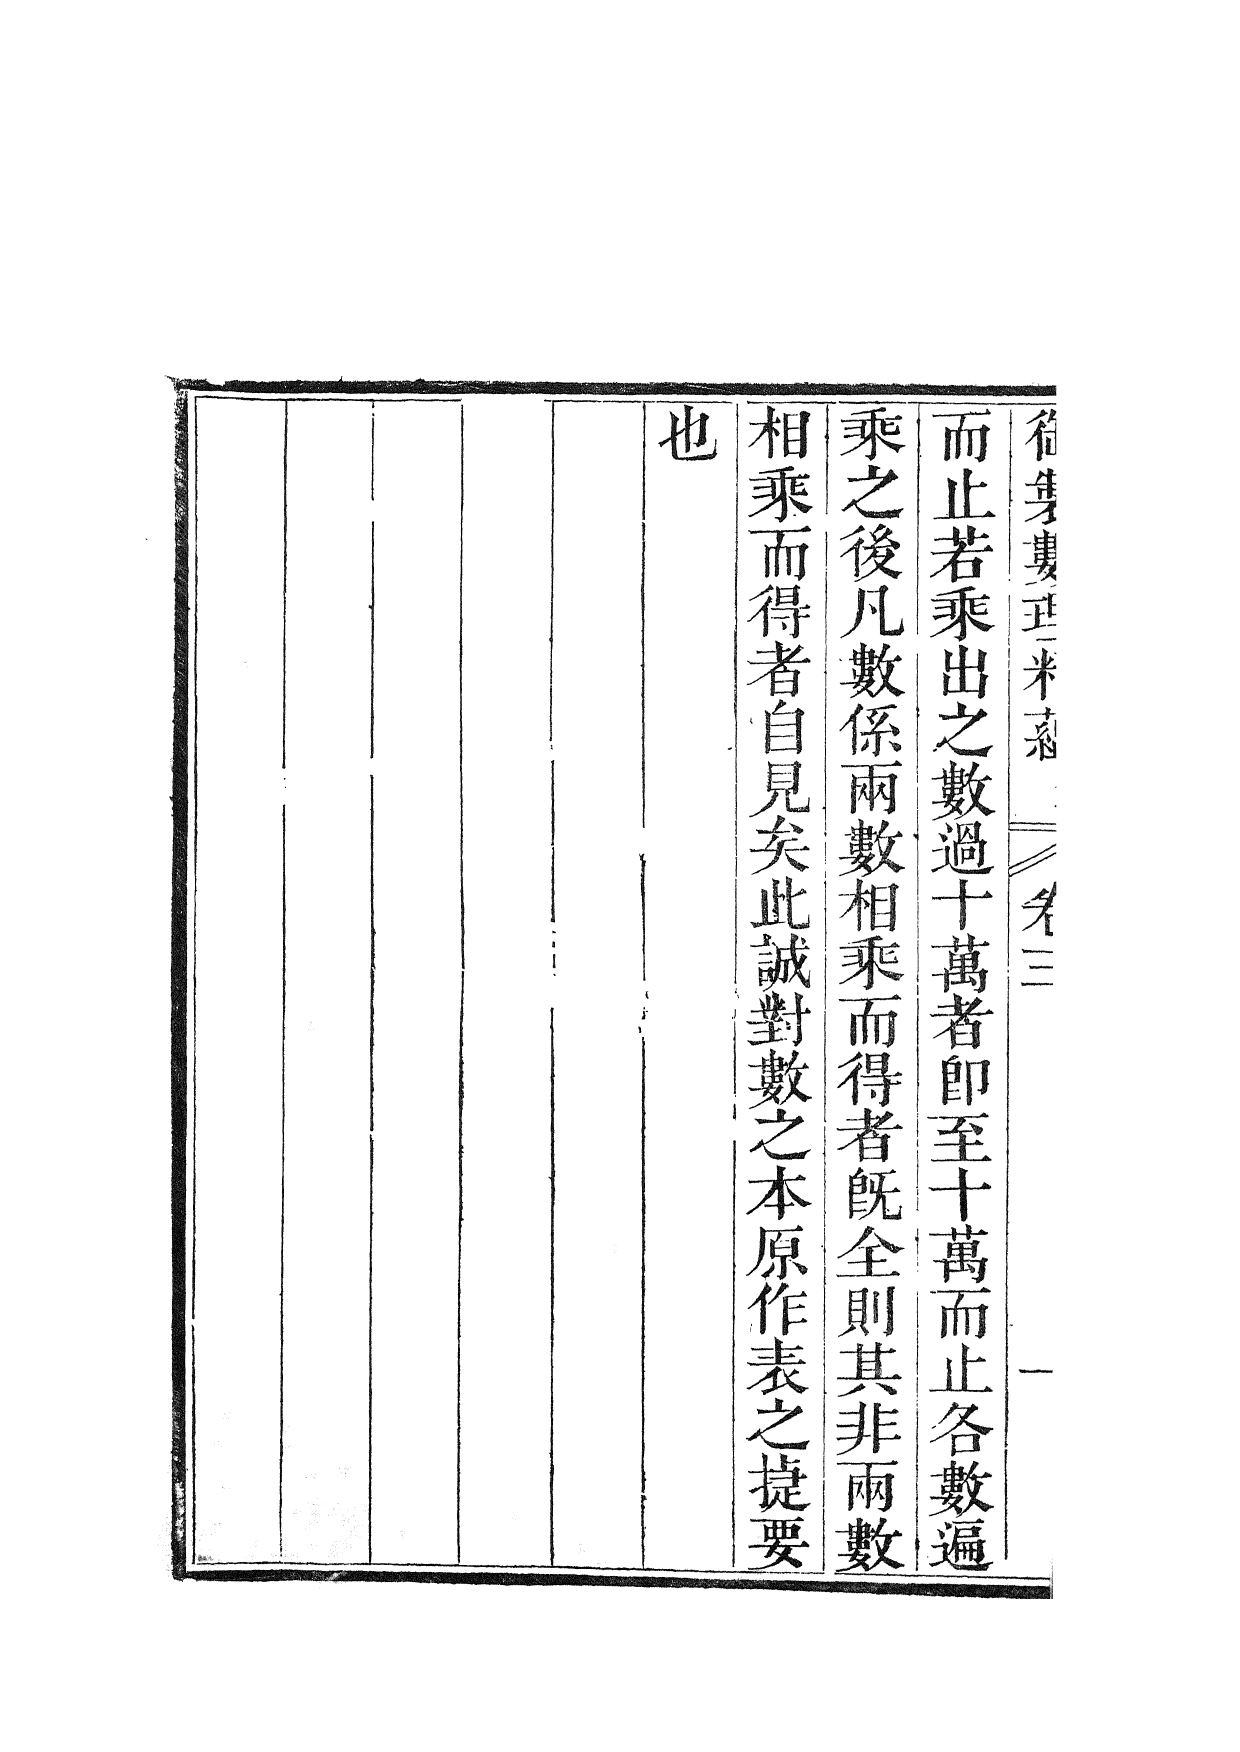 御製數理精蘊 卷三 一
而止若乘出之數過十萬者卽至十萬而止各數遍
乘之後凡數係兩數相乘而得者旣全則其非兩數
相乘而得者自見矣此誠對數之本原作表之㨗要
也